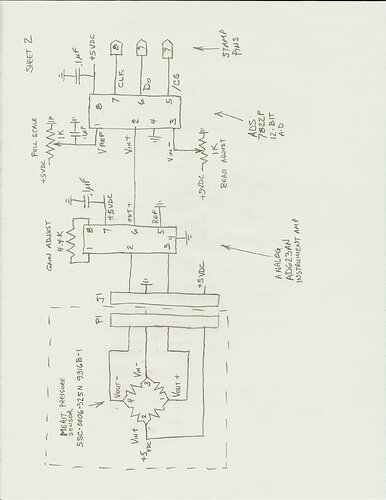 SHEET 2
MERIT PRESSURE
SENSOR
SSC-0006-S25N 9316B-1
VOUT-
VIN-
VIN+
+5
VDC
VOUT+
1
2
3
4
P1
J1
+5VDC
GAIN ADJUST
4.4K
.1µF
+5VDC
1
8
7
2
6
OUT+
3
4
5
REF
ANALOG
AD623AN
INSTRUMENT AMP
FULL SCALE
+5VDC
1K
.1µF
VREF
VIN+
VIN-
1
8
7
2
6
4
3
5
.1µF
+5VDC
CLK
8
DO
9
/CS
7
+5VDC
1K
ZERO ADJUST
STAMP
PINS
ADS
7822P
12-BIT
A-D